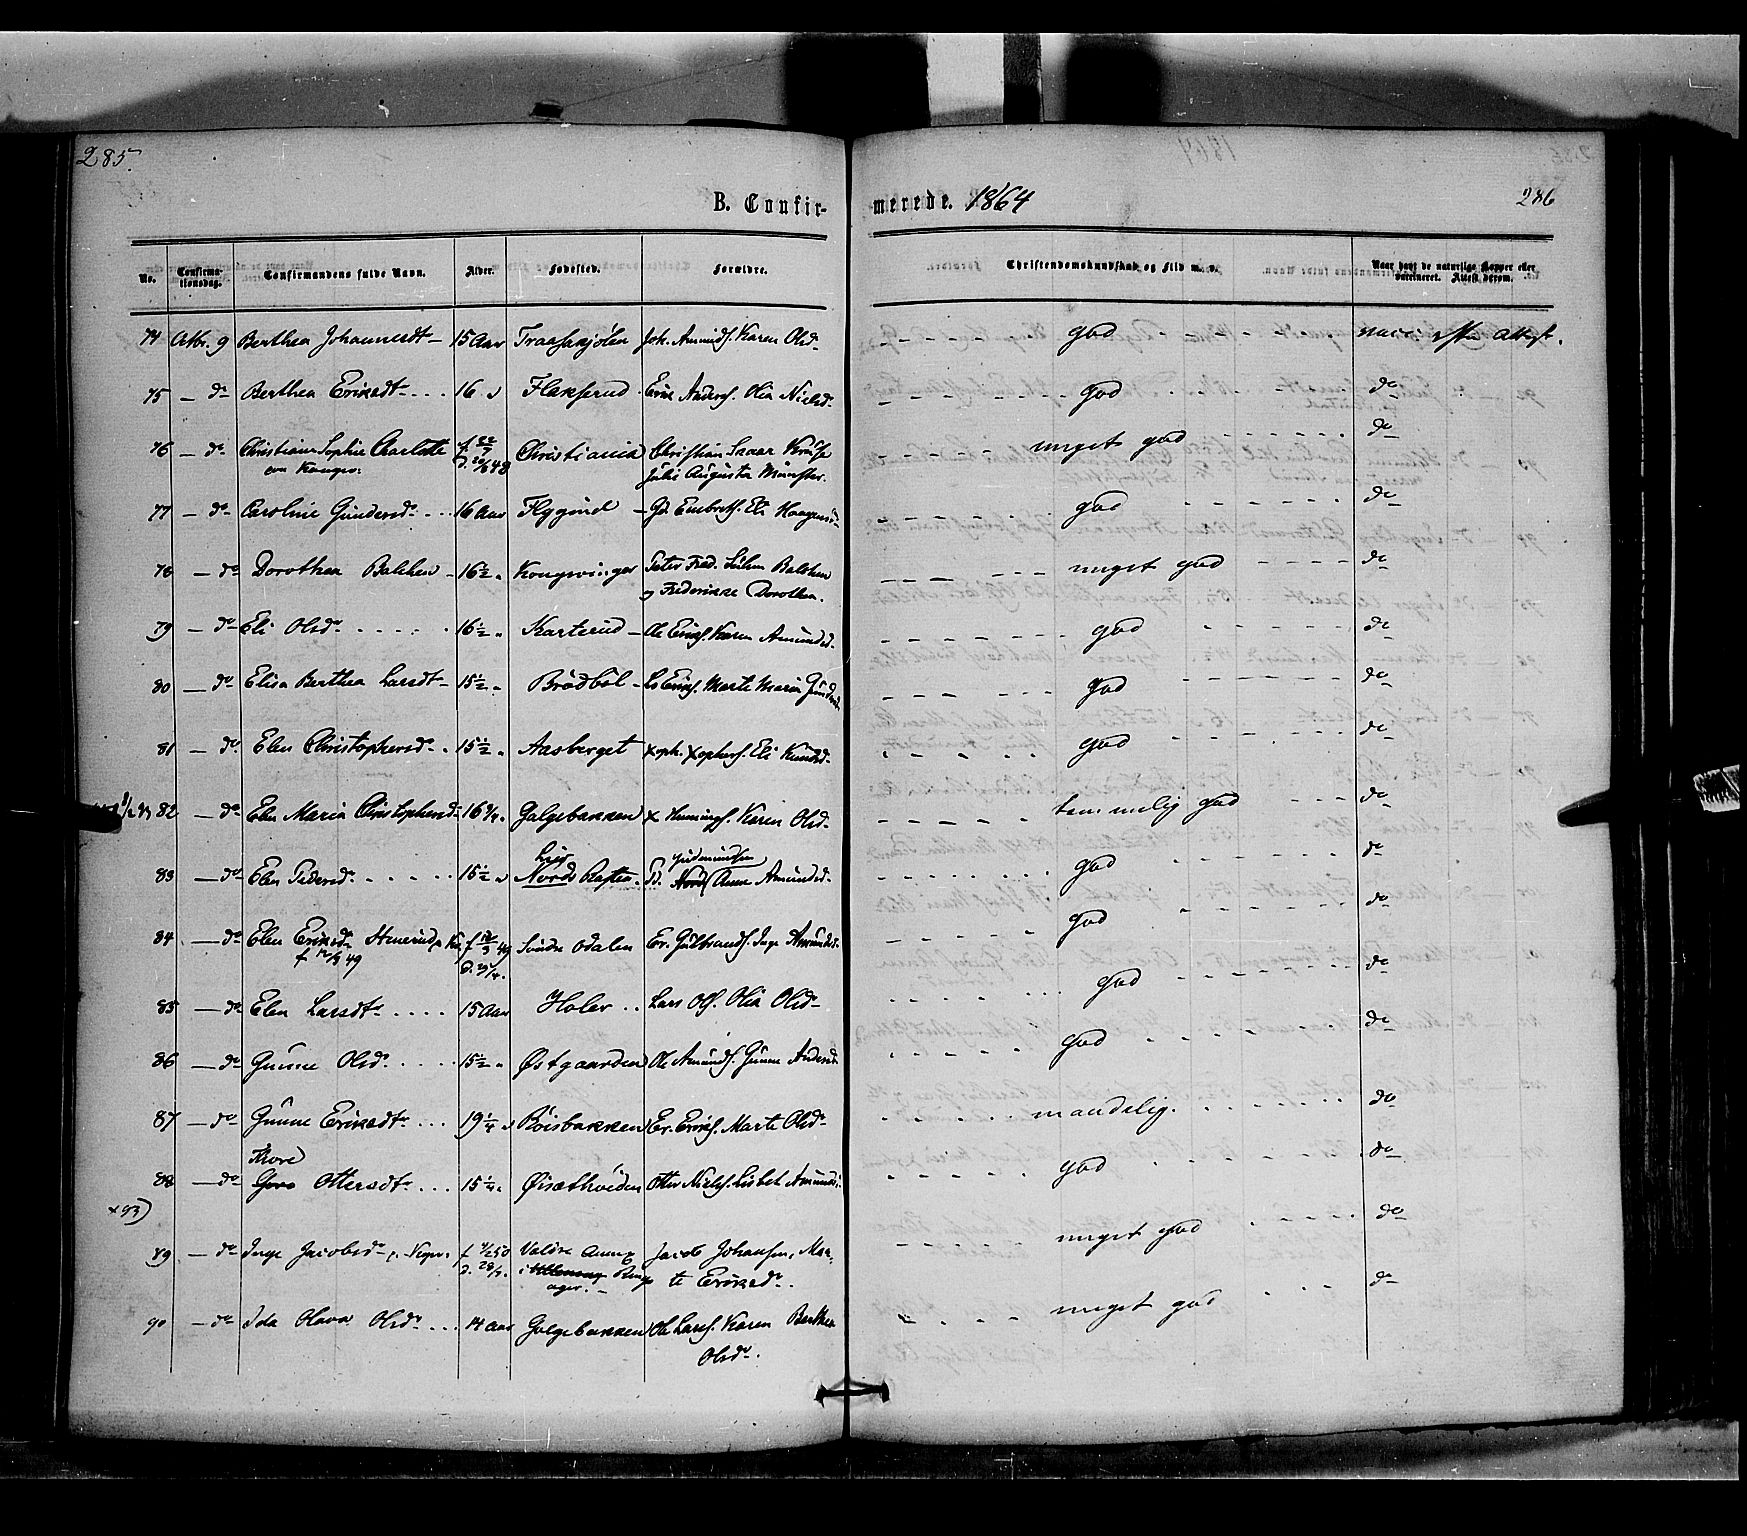 285.
B. Confirmerede. 1864
286
No. Confirmationsdag. Confirmandens fulde Navn. Alder. Fødested. Forældre. Christendomskundskab og Flid m. v. Naar havt de naturlige Kopper eller vaccineret. Attest derom.
74 Octbr. 9 Berthea Johannesdt 15 Aar Traaskjølen Joh. Amunds. Karen Olsd. god vacc. efter Attest.
75 — do Berthea Eriksdt 16 " Flakserud Erik Anders. Olia Nielsd. god do
76 — do Christiane Sophie Charlotte f 22/7 Christiania Christian Kruse meget god do
d. 20/8 48 Julie Augusta Münster.
77 — do Caroline Gundersd. 16 Aar Flygind Gd. Embreths. Eli Haagensd. god do
78 — do Dorothea Balchen 16½ " Kongsvinger Peter Fred. Balchen meget god do
og Frederikke Dorothea.
79 — do Eli Olsd. 16½ " Karterud Ole Eriks. Karen Amundsd. god do
80 — do Elisa Berthea Larsdt 15½ " Brødbøl Ls Eriks. Marte Maria Gundersd. god do
81 — do Elen Christophersd. 15½ " Aasberget Xoph. Xophers. Eli Knudsd. god do
82 — do Elen Maria Christophersd. 16¾ " Galgebakken X Hemings. Karen Olsd. temmelig god do
83 — do Elen Pedersd. 15½ " Nordre Raften Pd. Gudmundsen Anne Amundsd. god do
84 — do Elen Eriksd. f 12/3 49 Søndre Odalen Er. Gulbrands. Inge Amundsd. god do
f 12/3 49 d. 29/4.
85 — do Elen Larsdt 15 Aar Holer Lars Ols. Olia Olsd. god do
86 — do Gunne Olsd. 15½ " Østgaarden Ole Amunds. Gunne Andersd. god do
87 — do Gunne Eriksdt 19¼ " Røisbakken Er. Eriks. Marte Olsd. maadelig. do
Thore
88 — do Goro Ottersdt 15¼ " Øisethveden Otter Niels. Lisbet Amundsd. god do
x 93)
89 — do Inge Jacobsd. f 4/2 50 Valdre Annex Jacob Johansen, Mar- meget god do
d. 28/7. i Ringsager. te Eriksd.
90 — do Ida Olava Olsd. 14 Aar Galgebakken Ole Lars. Karen Berthea meget god do
Olsd.